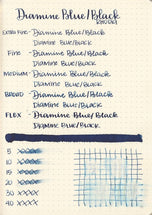 Diamine Blue/Black
Extra Fine - Diamine Blue/Black
Diamine Blue/Black
Fine - Diamine Blue/Black
Diamine Blue/Black
Medium - Diamine Blue/Black
Diamine Blue/Black
Broad - Diamine Blue/Black
Diamine Blue/Black
Flex - Diamine Blue/Black
Diamine Blue/Black
5 xxxx
10 xxxx
15 xxxx
20 xxxx
30 xxxx
40 xxxx